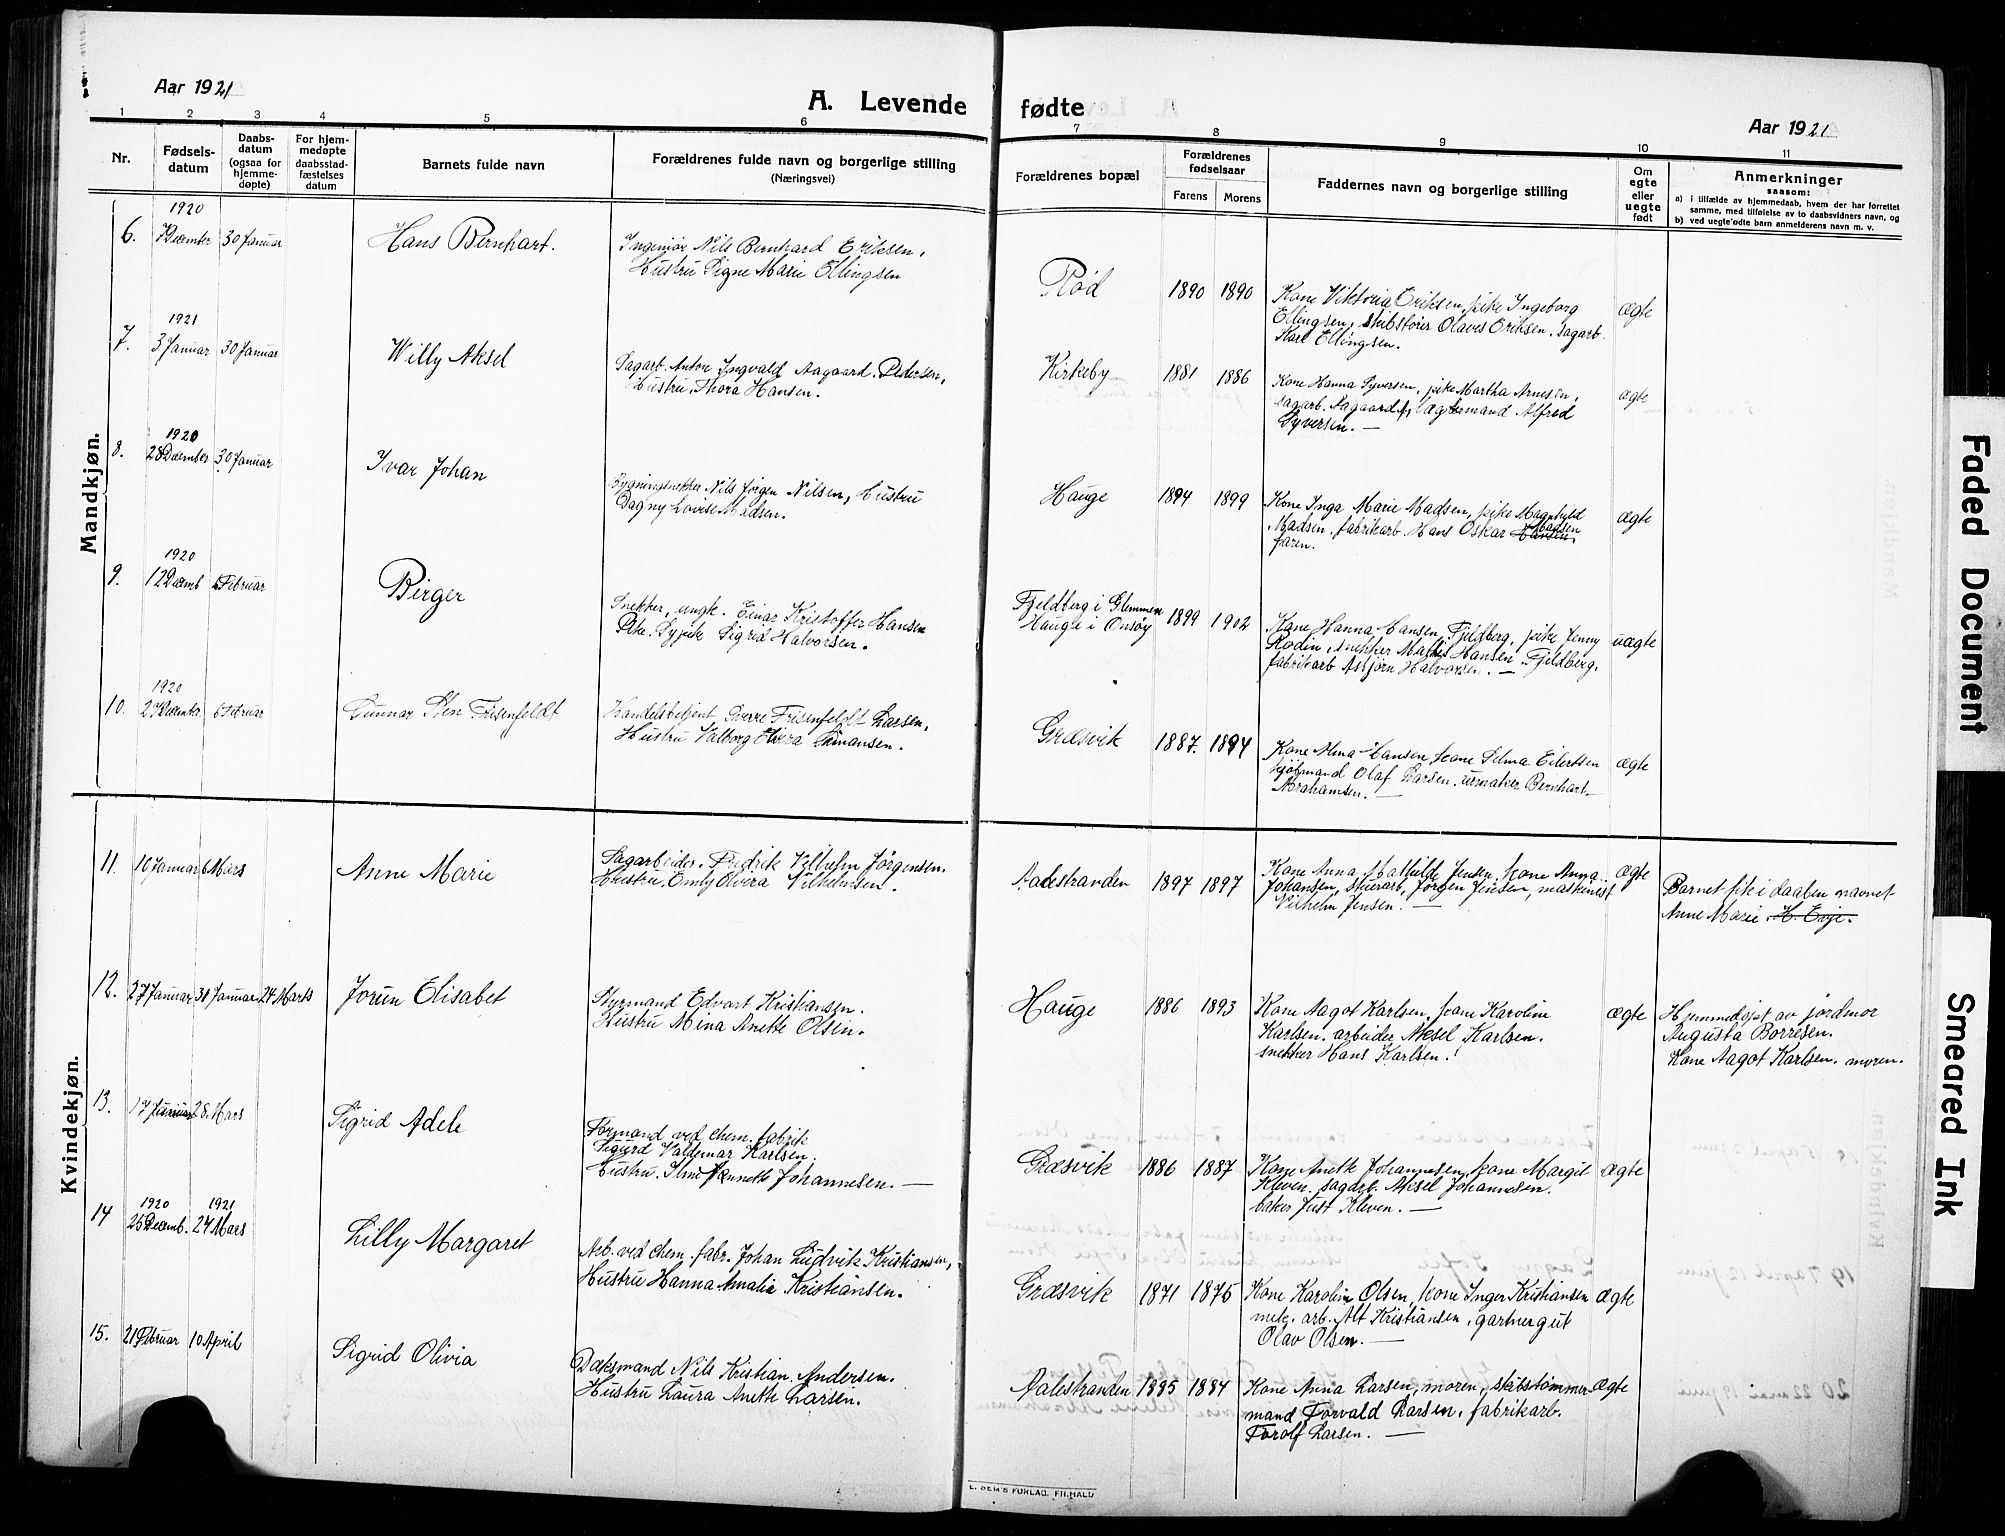 Aar 1921
A. Levende fødte
Aar 1921
1 2 3 4 5 6 7 8 9 10 11
Nr.
Fødsels-
datum
Daabs-
datum
(ogsaa for
hjemme-
døpte)
For hjem-
medøpte
daabsstad-
fæstelses
datum
Barnets fulde navn
Forældrenes fulde navn og borgerlige stilling
(Næringsvei)
Forældrenes bopæl
Forældrenes
fødselsaar
Farens Morens
Faddernes navn og borgerlige stilling
Om
egte
eller
uegte
født
Anmerkninger
saasom:
a) i tilfælde av hjemmedaab, hvem der har forrettet
samme, med tilføielse av to daabsvidners navn, og
b) ved uegte fødte barn anmelderens navn m. v.
Mandkjøn.
1920
6. 7 December 30 Januar Hans Bernhart.
Ingeniør Nils Bernhard Eriksen,
Hustru Signe Marie Ellingsen
Rød 1890 1890
Kone Viktoria Eriksen, pike Ingeborg
Ellingsen, skibstører Olaves Eriksen, sagarb.
Karl Ellingsen.
ægte
1921
7. 3 Januar 30 Januar Willy Aksel
Sagarb. Anton Ingvald Aagaard Pedersen,
Hustru Thora Hansen.
Kirkeby 1881 1886
Kone Hanna Syversen, pike Martha Arnesen,
sagarb. Aagaard, lægtermand Alfred
Syversen. —
ægte
1920
8. 28 December 30 Januar Ivar Johan
Bygningsnekker Nils Jørgen Nilsen, Hustru
Dagny Lovise Madsen.
Hauge 1894 1899
Kone Inga Marie Madsen, pike Magnhild
Madsen, fabrikarb. Hans Oskar Hansen, Madsen
faren.
ægte
1920
9. 12 Decemb 6 Februar Birger
Snekker, ungk. Einar Kristoffer Hansen
Pike. Sypike Sigrid Halvorsen.
Fjeldberg i Glemmen
Hauge i Onsøy
1899 1902
Kone Hanna Hansen, Fjeldberg, pike Jenny
Rodin, snekker Hansen Fjeldberg,
fabrikarb Asbjørn Halvorsen. —
uægte
1920
10. 27 December 6 Februar Gunnar Sten Frisenfeldt
Handelsbetjent Sverre Frisenfeldt Larsen,
Hustru Valborg Elvira Simansen.
Græsvik 1887. 1894
Kone Alma Hansen, kone Selma Eilertsen
kjøbmand Olaf Larsen, urmaker Bernhart
Abrahamsen. —
ægte
Kvindekjøn.
11. 10 Januar 6 Mars Anne Marie
Sagarbeider. Fredrik Vilhelm Jørgensen.
Hustru, Emly Elvera Vilhelmsen.
Aalestranden 1897 1897
Kone Anna Mathilde Jensen, kone Anna
Johansen, skierarb, Jørgen Jensen, maskenist
Vilhelm Jensen. —
ægte
Barnet fik i daaben navnet
Anne Marie H. Evje.
12. 27 Januar 31 Januar 24 Marts Jorun Elisabet
Styrmand Edvart Kristiansen.
Hustru Mina Anette Olsen.
Hauge 1886 1893
Kone Aagot Karlsen, kone Karoline
Karlsen, arbeider Aksel Karlsen.
snekker Hans Karlsen.
ægte
Hjemmedøpt av jordmor
Augusta Borresen.
Kone Aagot Karlsen. moren.
13. 17 Januar 28. Mars Sigrid Adele
Formand ved chem. fabrik
Sigurd Valdemar Karlsen.
Hustru. Annette Johannesen. —
Græsvik 1886 1887
Kone Anette Johannesen, kone Margit
Kleven. sagarb. Aksel Johannesen.
baker Just Kleven. —
ægte
1920 1921
14 25 Decemb. 24 Mars Lilly Margaret
Arb. ved chem. fabr. Johan Ludvik Kristiansen,
Hustru Hanna Amalia Kristiansen.
Græsvik 1871 1876
Kone Karolin Olsen, kone Inger Kristiansen
mek. arb. Alf Kristiansen, gartnergut
Olav Olsen. —
ægte
15. 21 Februar 10 April Sigrid Olivia
Dæksmand Nils Kristian. Andersen.
Hustru Laura Anette Larsen.
Aalestranden 1885 1884
Kone Anna Larsen, moren, skibstømmer-
mand Torvald Larsen, fabrikarb.
Torolf Larsen. —
ægte
E. SEM'S FORLAG. FR.HALD
Faded Document
Smeared Ink